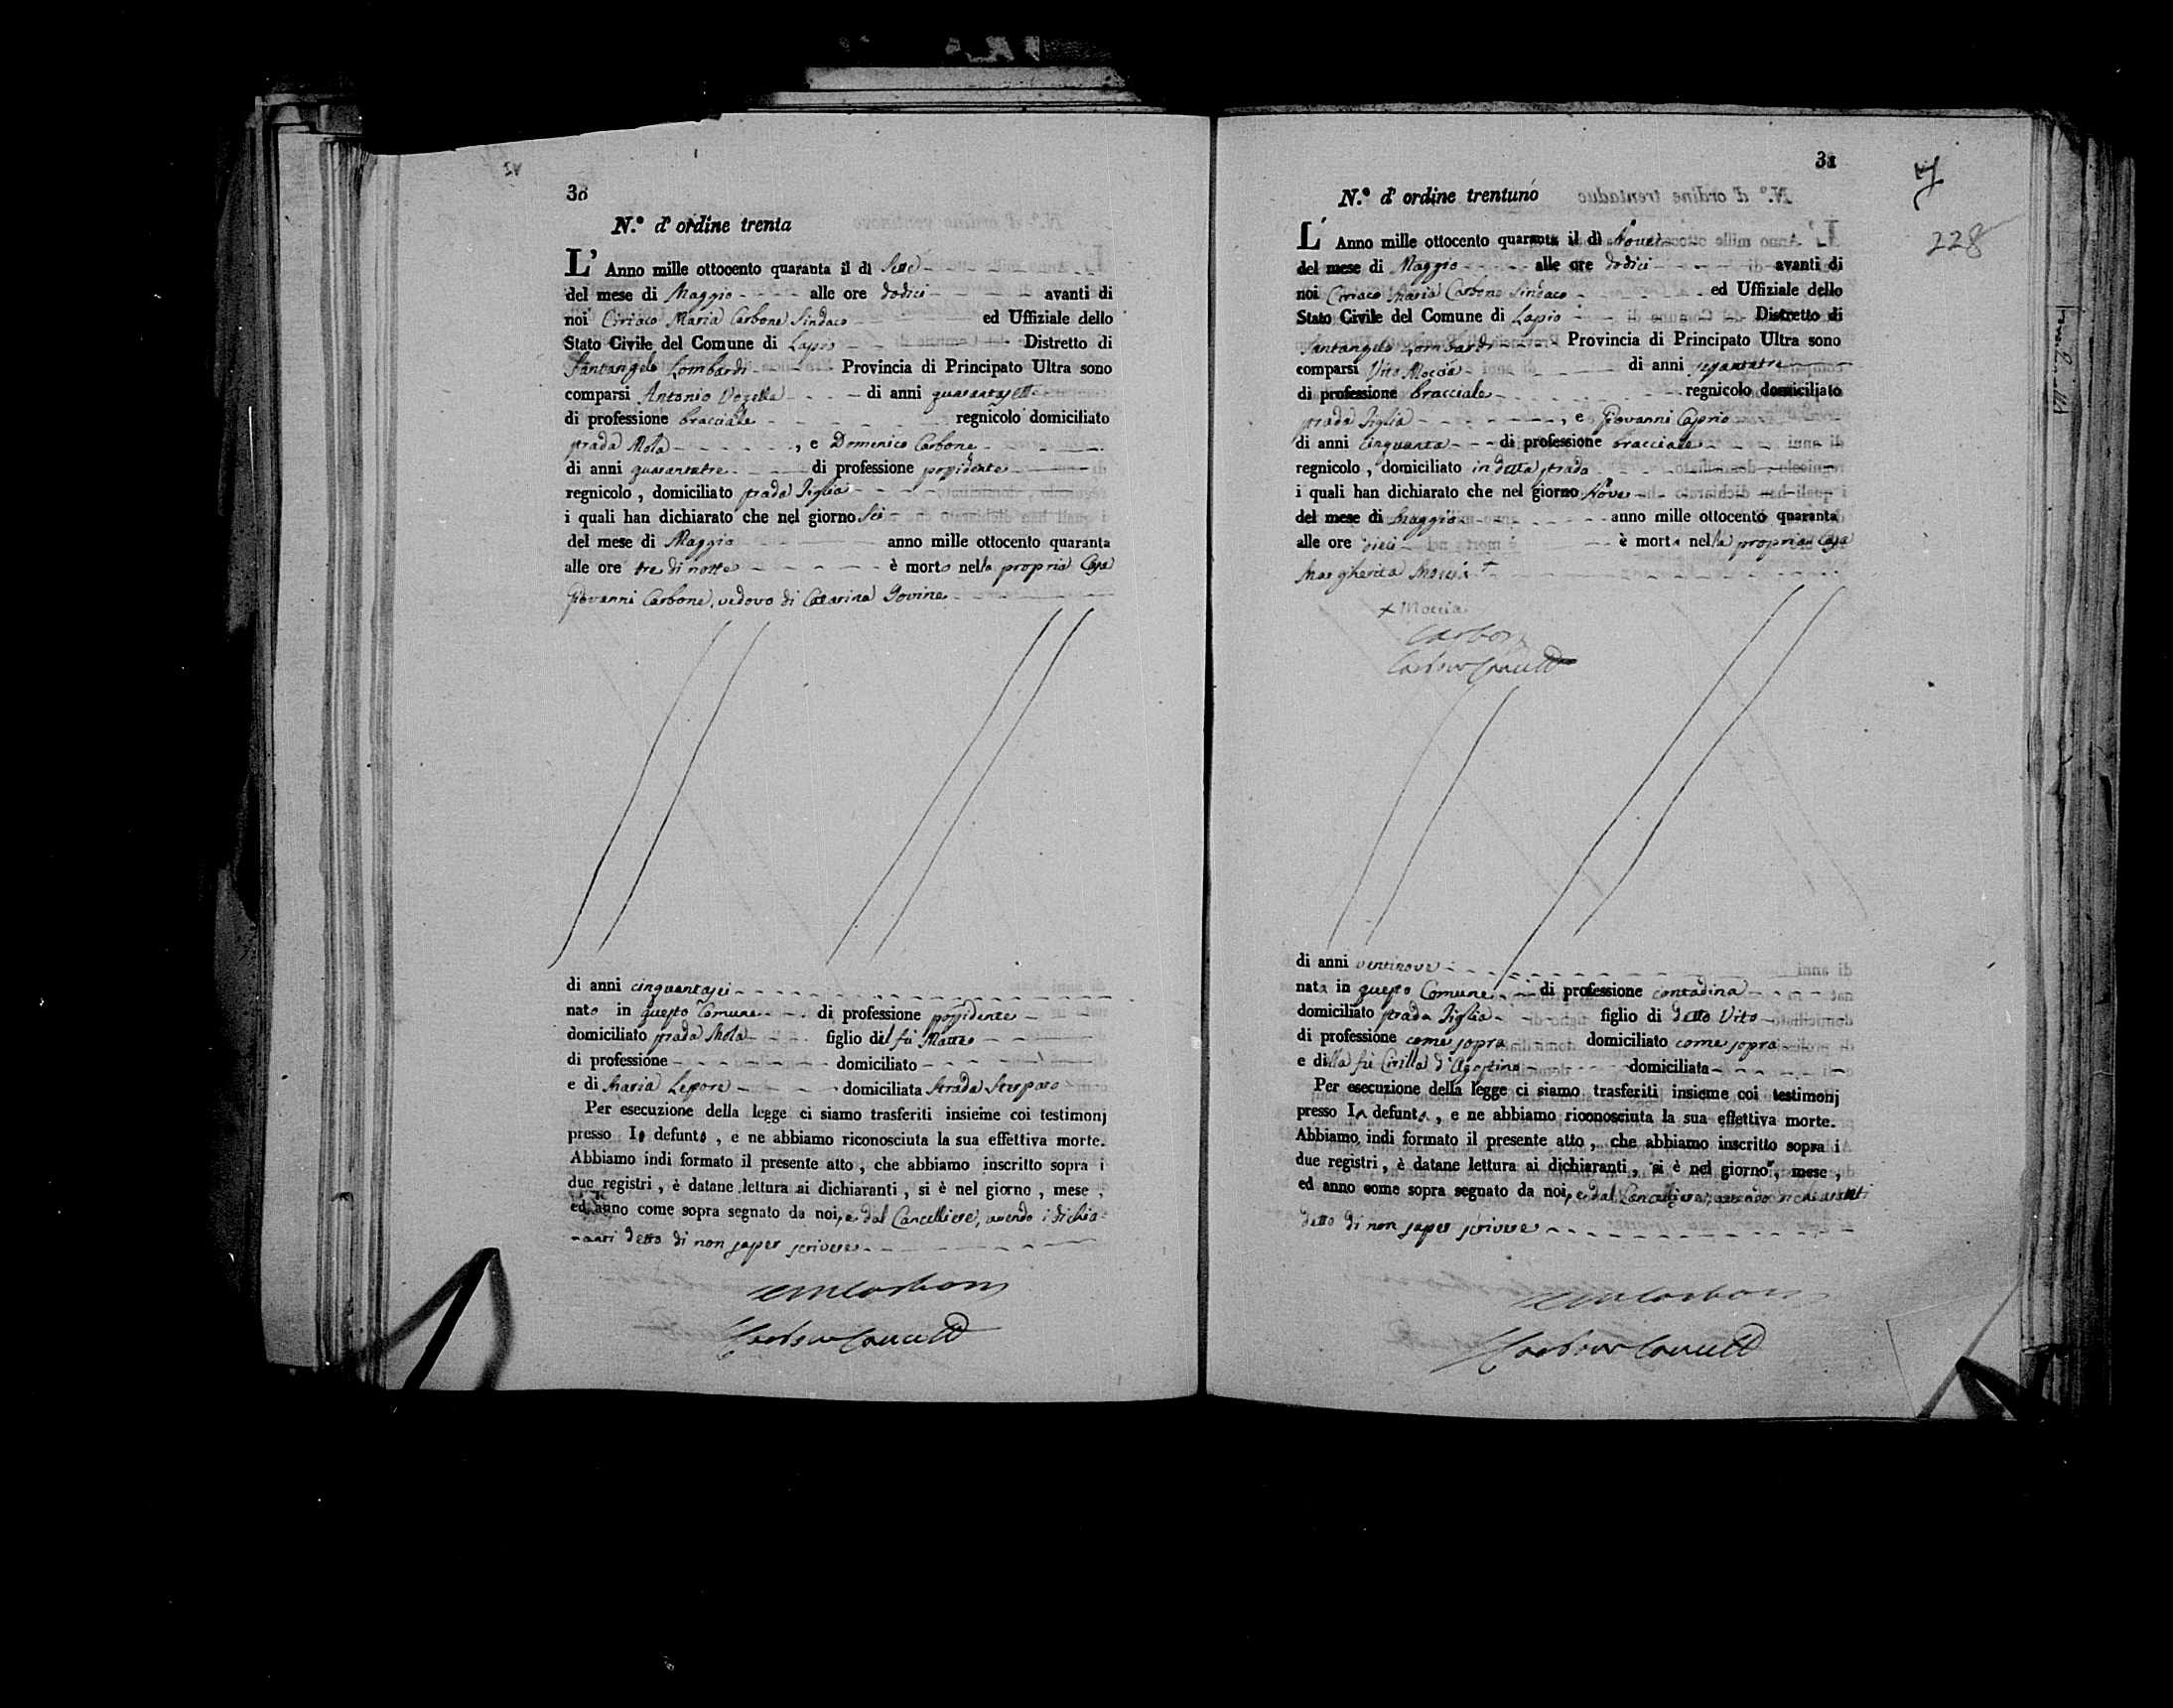 30
N.º d' ordine trenta
L' Anno mille ottocento quaranta il dì Sette
del mese di Maggio alle ore dodici avanti di
noi Ciriaco Maria Carbone Sindaco ed Uffiziale dello
Stato Civile del Comune di Lapio Distretto di
Santangelo Lombardi Provincia di Principato Ultra sono
comparsi Antonio di anni quarantasette
di professione bracciale regnicolo domiciliato
strada Mola , e Domenico Carbone
di anni quarantatre di professione possidente
regnicolo , domiciliato strada Tiglia
i quali han dichiarato che nel giorno Sei
del mese di Maggio anno mille ottocento quaranta
alle ore tre di notte è morto nella propria Casa
Giovanni Carbone, vedovo di Catarina Iovine
di anni cinquantasei
nato in questo Comune di professione possidente
domiciliato strada Mola figlio del fù Matteo
di professione domiciliato
e di Maria Lepore domiciliata Strada
Per esecuzione della legge ci siamo trasferiti insieme coi testimonj
presso Io defunto , e ne abbiamo riconosciuta la sua effettiva morte.
Abbiamo indi formato il presente atto , che abbiamo inscritto sopra i
due registri , è datane lettura ai dichiaranti , si è nel giorno , mese ,
ed anno come sopra segnato da noi, e dal Cancelliere, avendo i dichia-
-ranti detto di non saper scrivere
31
N.º d' ordine trentuno
228
L' Anno mille ottocento quaranta il dì Nove
del mese di Maggio alle ore dodici avanti di
noi Ciriaco Maria Carbone Sindaco ed Uffiziale dello
Stato Civile del Comune di Lapio Distretto di
Santangelo Lombardi Provincia di Principato Ultra sono
comparsi Vito Moccia di anni
di professione bracciale regnicolo domiciliato
strada Tiglia , e Giovanni Caprio
di anni cinquanta di professione bracciale
regnicolo , domiciliato in detta strada
i quali han dichiarato che nel giorno Nove
del mese di Maggio anno mille ottocento quaranta
alle ore dieci è morta nella propria Casa
Margherita Moccia +
+ Moccia
Carbone
di anni ventinove
nata in questo Comune di professione contadina
domiciliato strada Tiglia figlio di detto Vito
di professione come sopra domiciliato come sopra
e della fù Cirilla d'Agostino domiciliata
Per esecuzione della legge ci siamo trasferiti insieme coi testimonj
presso Ia defunta , e ne abbiamo riconosciuta la sua effettiva morte.
Abbiamo indi formato il presente atto , che abbiamo inscritto sopra i
due registri , è datane lettura ai dichiaranti , si è nel giorno , mese ,
ed anno come sopra segnato da noi, e dal Cancelliere, avendo i dichiaranti
detto di non saper scrivere